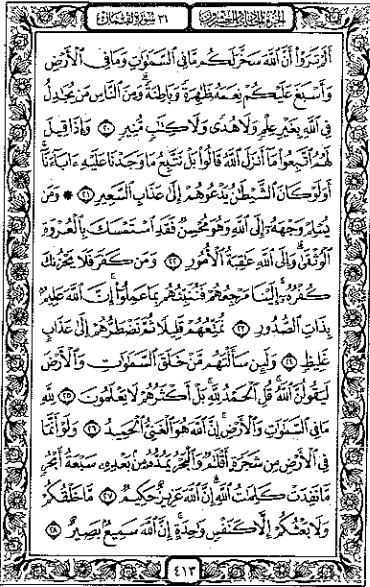 الجزء الحادي والعشرون ٣١ سورة لقمان
أَلَمْ تَرَوْا أَنَّ ٱللَّهَ سَخَّرَ لَكُم مَّا فِي ٱلسَّمَٰوَٰتِ وَمَا فِي ٱلْأَرْضِ
وَأَسْبَغَ عَلَيْكُمْ نِعَمَهُۥ ظَٰهِرَةً وَبَاطِنَةً ۗ وَمِنَ ٱلنَّاسِ مَن يُجَٰدِلُ
فِي ٱللَّهِ بِغَيْرِ عِلْمٍ وَلَا هُدًى وَلَا كِتَٰبٍ مُّنِيرٍ ٢٠ وَإِذَا قِيلَ
لَهُمُ ٱتَّبِعُوا۟ مَآ أَنزَلَ ٱللَّهُ قَالُوا۟ بَلْ نَتَّبِعُ مَا وَجَدْنَا عَلَيْهِ ءَابَآءَنَآ ۚ
أَوَلَوْ كَانَ ٱلشَّيْطَٰنُ يَدْعُوهُمْ إِلَىٰ عَذَابِ ٱلسَّعِيرِ ٢١ ۞ وَمَن
يُسْلِمْ وَجْهَهُۥٓ إِلَى ٱللَّهِ وَهُوَ مُحْسِنٌ فَقَدِ ٱسْتَمْسَكَ بِٱلْعُرْوَةِ
ٱلْوُثْقَىٰ ۗ وَإِلَى ٱللَّهِ عَٰقِبَةُ ٱلْأُمُورِ ٢٢ وَمَن كَفَرَ فَلَا يَحْزُنكَ
كُفْرُهُۥٓ ۚ إِلَيْنَا مَرْجِعُهُمْ فَنُنَبِّئُهُم بِمَا عَمِلُوٓا۟ ۚ إِنَّ ٱللَّهَ عَلِيمٌۢ
بِذَاتِ ٱلصُّدُورِ ٢٣ نُمَتِّعُهُمْ قَلِيلًا ثُمَّ نَضْطَرُّهُمْ إِلَىٰ عَذَابٍ
غَلِيظٍ ٢٤ وَلَئِن سَأَلْتَهُم مَّنْ خَلَقَ ٱلسَّمَٰوَٰتِ وَٱلْأَرْضَ
لَيَقُولُنَّ ٱللَّهُ ۚ قُلِ ٱلْحَمْدُ لِلَّهِ ۚ بَلْ أَكْثَرُهُمْ لَا يَعْلَمُونَ ٢٥ لِلَّهِ
مَا فِي ٱلسَّمَٰوَٰتِ وَٱلْأَرْضِ ۚ إِنَّ ٱللَّهَ هُوَ ٱلْغَنِيُّ ٱلْحَمِيدُ ٢٦ وَلَوْ أَنَّمَا
فِي ٱلْأَرْضِ مِن شَجَرَةٍ أَقْلَٰمٌ وَٱلْبَحْرُ يَمُدُّهُۥ مِنۢ بَعْدِهِۦ سَبْعَةُ أَبْحُرٍ
مَّا نَفِدَتْ كَلِمَٰتُ ٱللَّهِ ۗ إِنَّ ٱللَّهَ عَزِيزٌ حَكِيمٌ ٢٧ مَّا خَلْقُكُمْ
وَلَا بَعْثُكُمْ إِلَّا كَنَفْسٍ وَٰحِدَةٍ ۗ إِنَّ ٱللَّهَ سَمِيعٌۢ بَصِيرٌ ٢٨
٤١٣